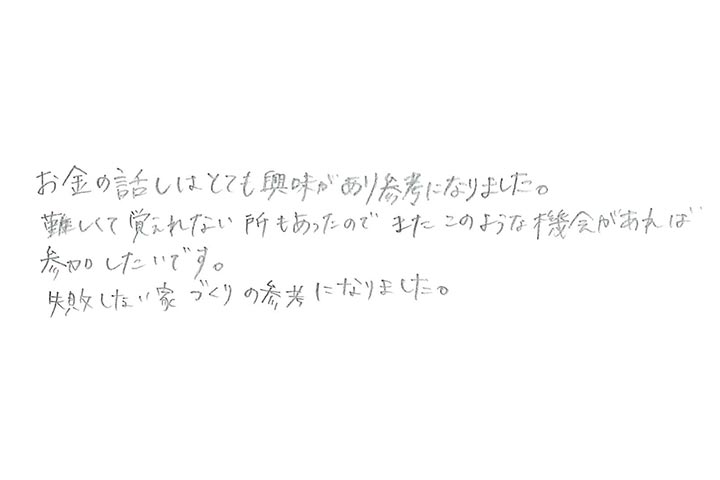 お金の話しはとても興味があり参考になりました。
難しくて覚えれない所もあったので またこのような機会があれば
参加したいです。
失敗しない家づくりの参考になりました。